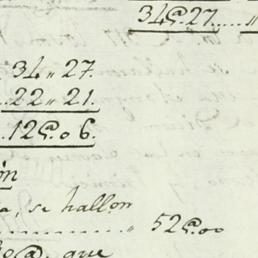 34@.27.....
34 " 27.
..22 " 21.
.12@.o 6.
ón
a, se hallon
.............." 52@.oo
@, que